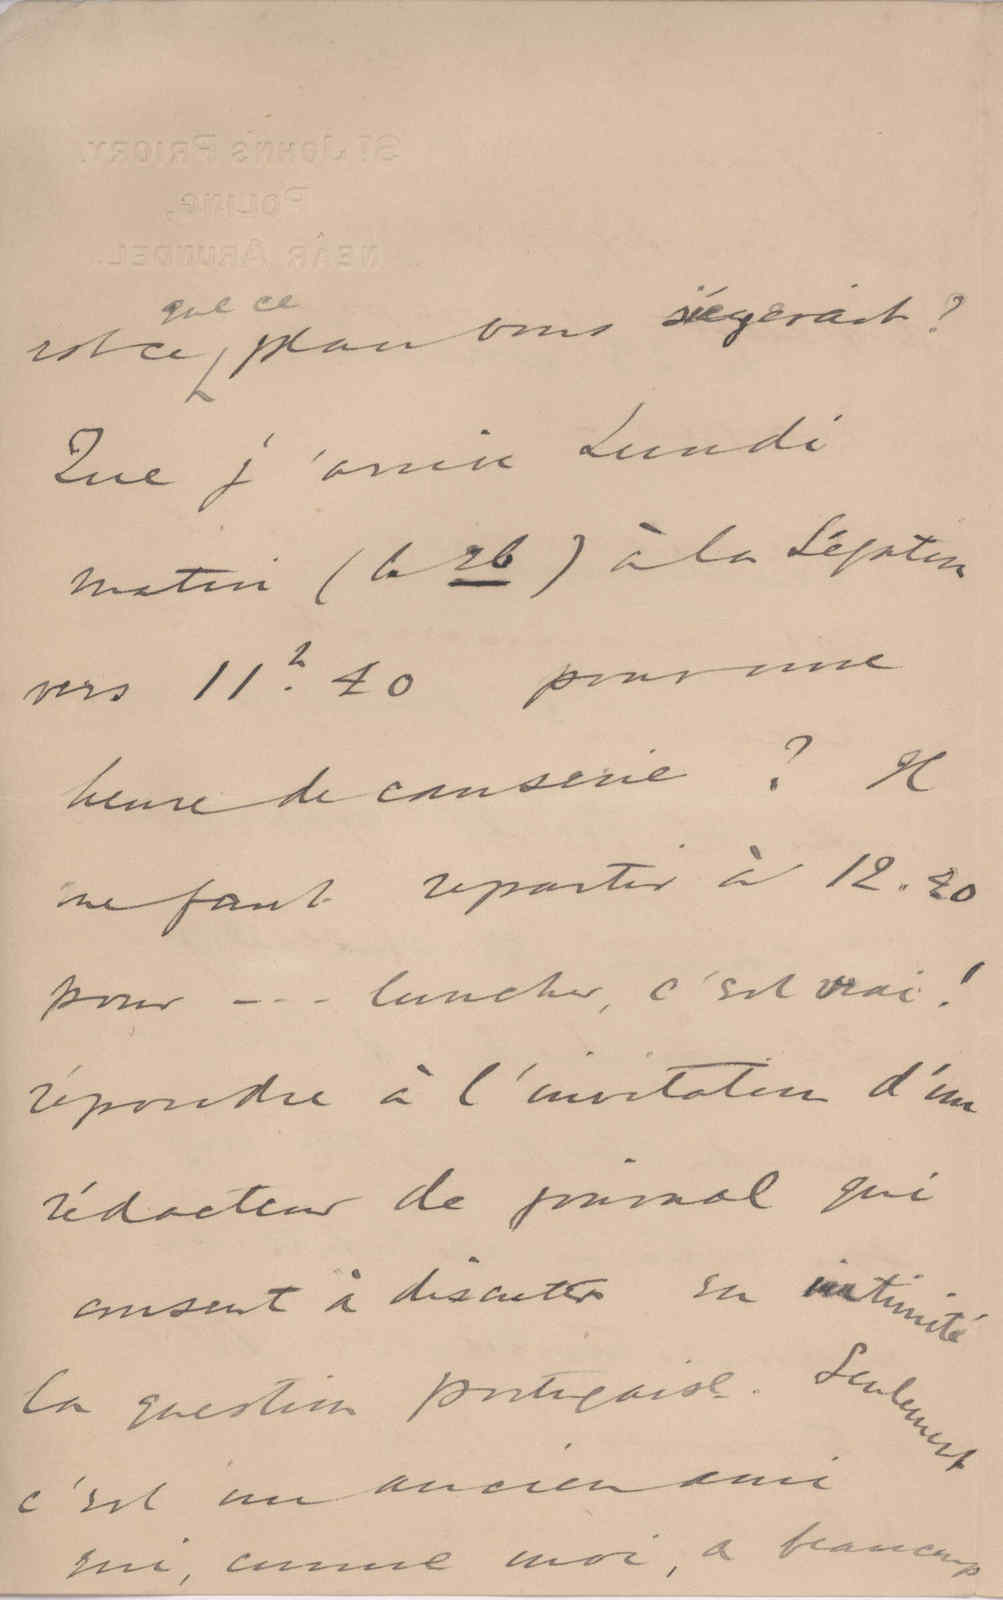 St JOHN'S PRIORY,
POLING,
NEAR ARUNDEL.
que ce
est ce plan vous siégerait?
Que j'arrive Lundi
matin (le 26) à la Légation
vers 11h. 40 pour une
heure de causerie? Il
me faut repartir à 12.40
pour --- luncher, c'est vrai!
répondre à l'invitation d'un
rédacteur de journal qui
consent à discuter en intimité
la question portugaise. Seulement
c'est un ancien ami
qui, comme moi, a beaucoup